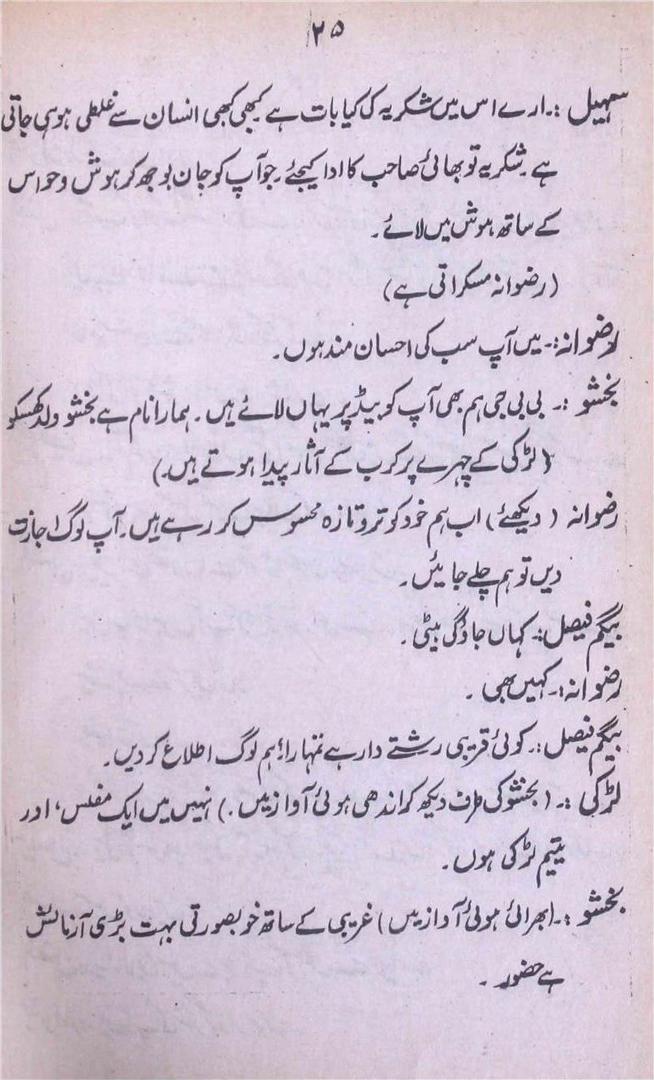 ۲۵
سہیل :۔ ارے اس میں شکریہ کی کیا بات ہے کبھی کبھی انسان سے غلطی ہو ہی جاتی
ہے شکریہ تو بھائی صاحب کا ادا کیجئے۔ جو آپ کو جان بوجھ کر ہوش و حواس
کے ساتھ ہوش میں لائے۔
(رضوانہ مسکراتی ہے)
رضوانہ:۔ میں آپ سب کی احسان مند ہوں۔
بخشو :۔ بی بی جی ہم بھی آپ کو بیڈ پر یہاں لائے ہیں۔ ہمارا نام ہے بخشو ولد کھسکو
(لڑکی کے چہرے پر کرب کے آثار پیدا ہوتے ہیں۔)
رضوانہ (دیکھئے) اب ہم خود کو تر و تازہ محسوس کر رہے ہیں۔ آپ لوگ اجازت
دیں تو ہم چلے جائیں۔
بیگم فیصل:۔ کہاں جاؤگی بیٹی۔
رضوانہ:۔ کہیں بھی ۔
بیگم فیصل:۔ کوئی قریبی رشتے دار ہے تمہارا؛ ہم لوگ اطلاع کر دیں۔
لڑکی :۔ (بخشو کی طرف دیکھ کر اندھی ہوئی آواز میں۔) نہیں میں ایک مفلس، اور
یتیم لڑکی ہوں۔
بخشو :۔ (بھرائی ہوئی آواز میں) غریبی کے ساتھ خوبصورتی بہت بڑی آزمائش
ہے حضور ۔